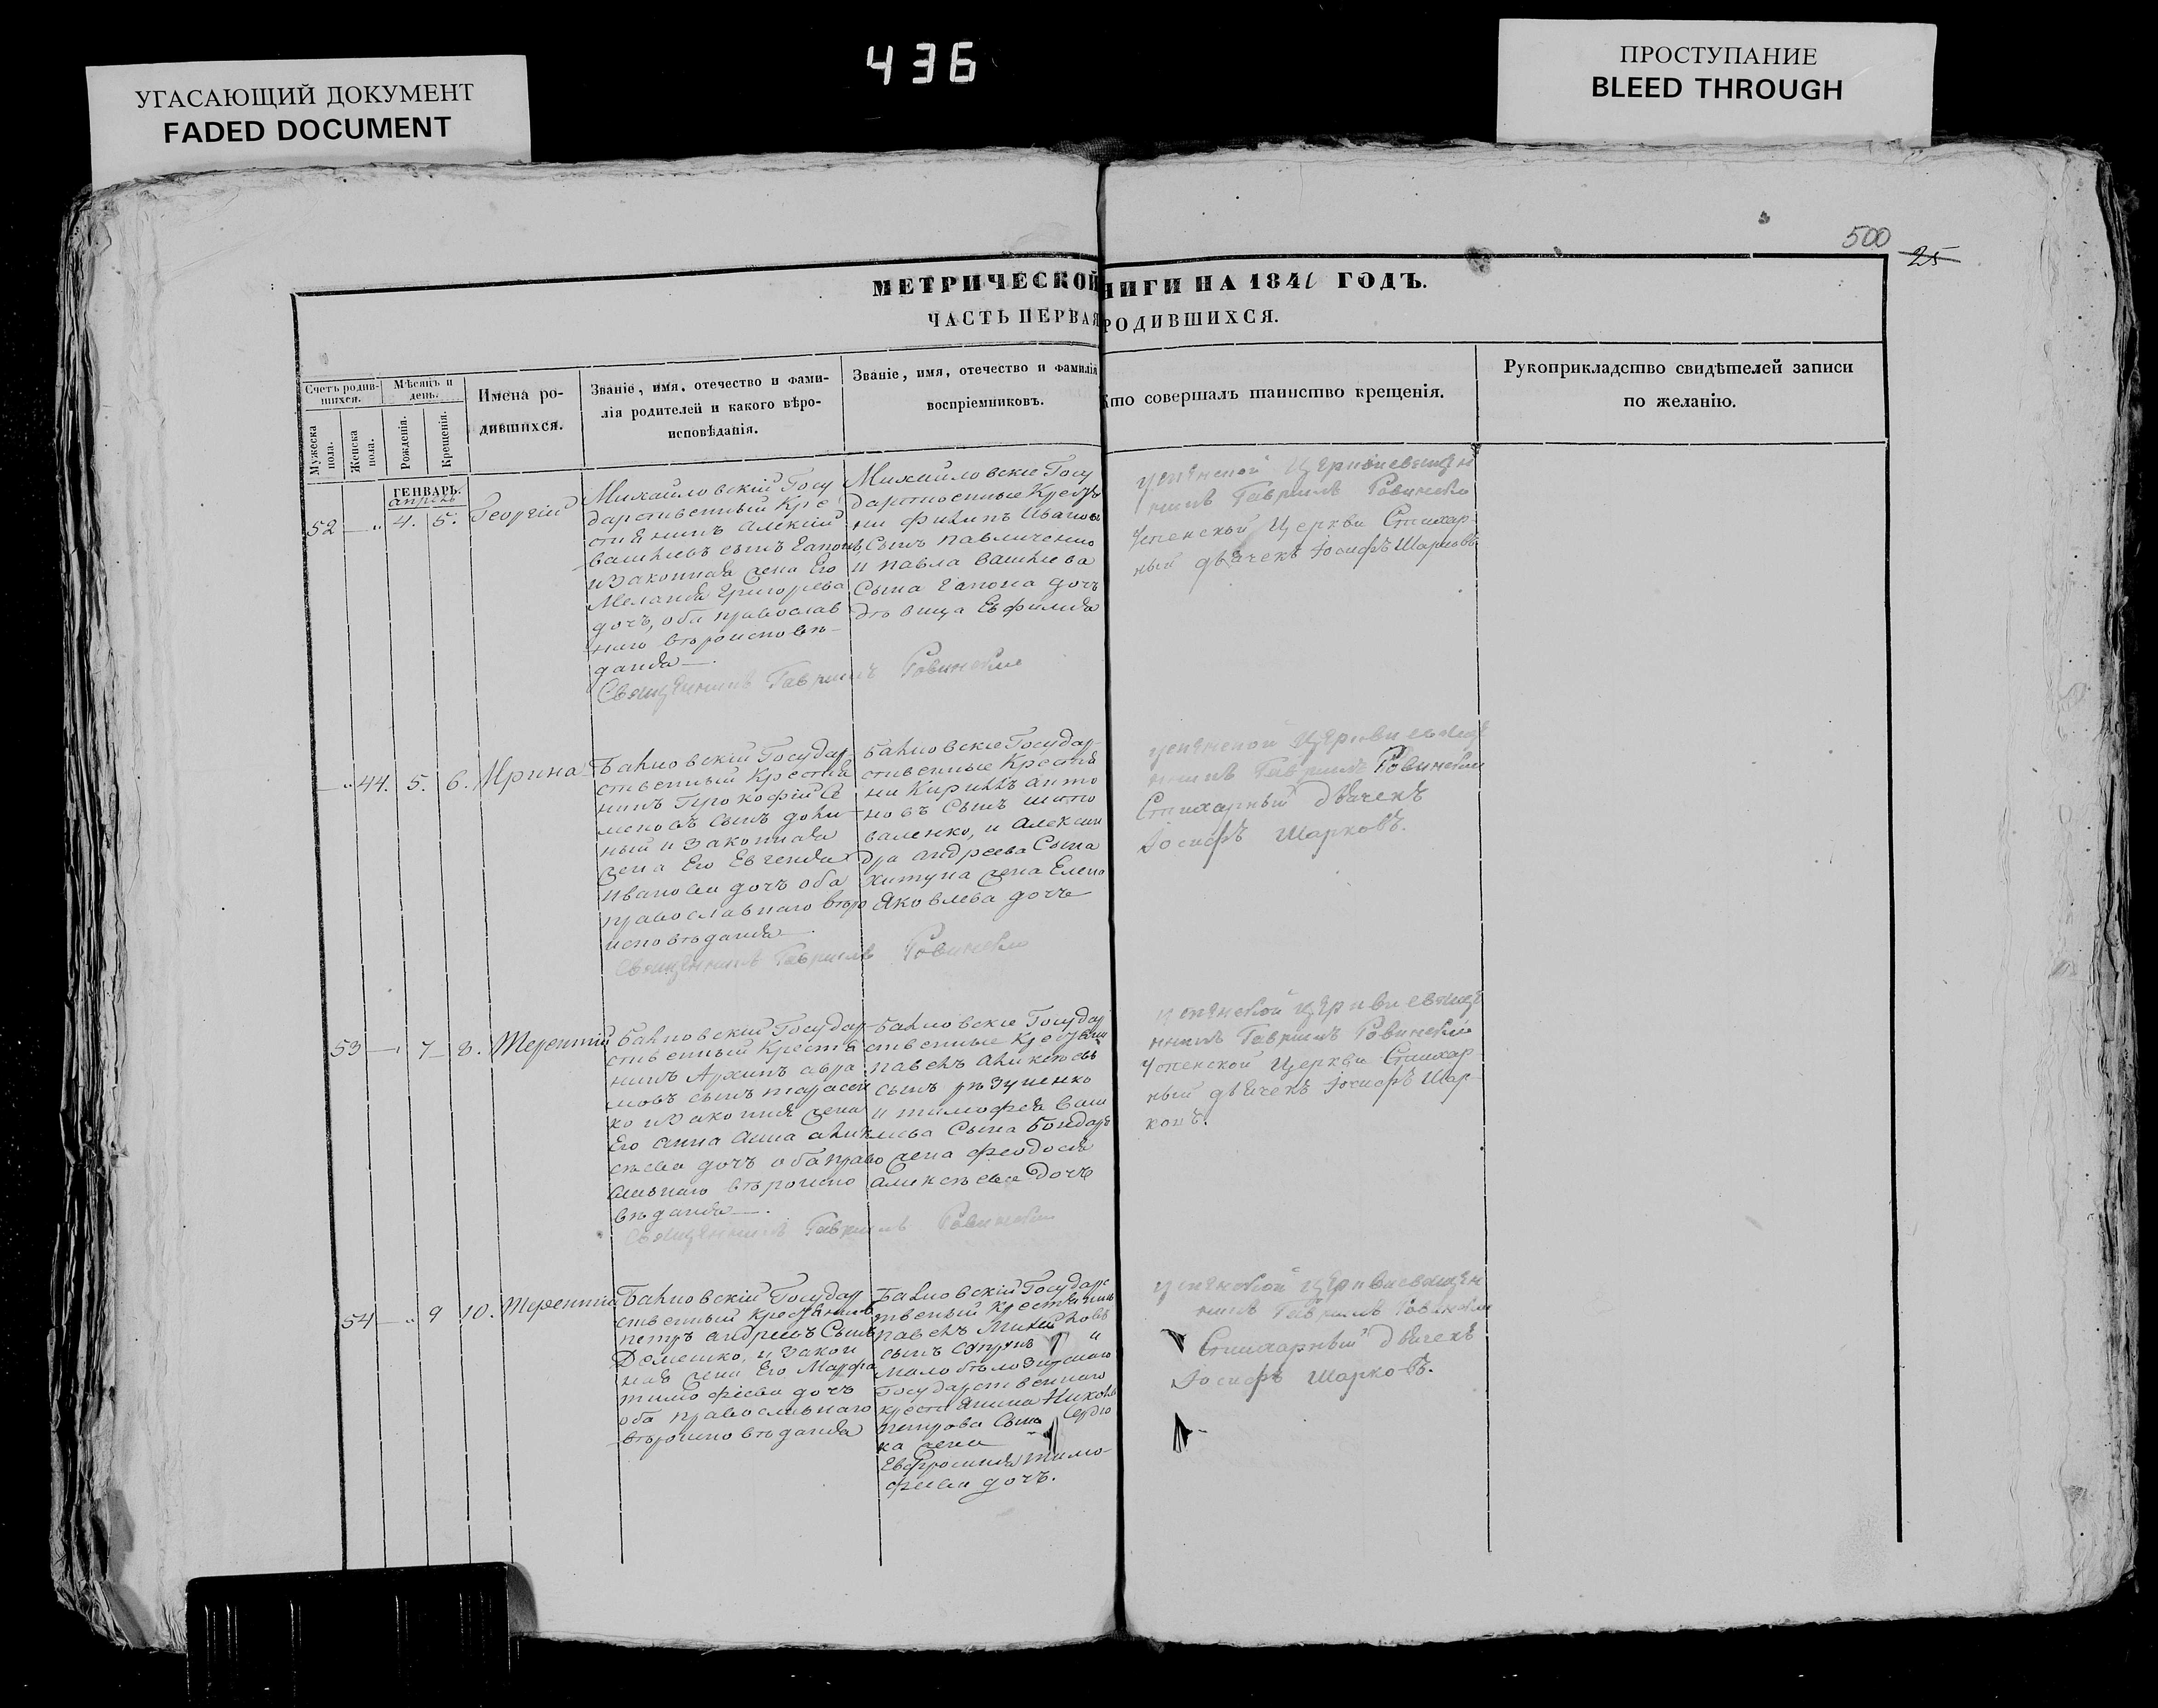 УГАСАЮЩИЙ ДОКУМЕНТ
FADED DOCUMENT
436
ПРОСТУПАНИЕ
BLEED THROUGH
500
25
МЕТРИЧЕСКОЙ НИГИ НА 1841 ГОДЪ.
ЧАСТЬ ПЕРВАЯ РОДИВШИХСЯ.
Счетъ родив-
шихся.
Мужеска
пола.
Женска
пола.
Мѣсяцъ и
день.
Рожденія.
Крещенія.
Имена ро-
дившихся.
Званіе, имя, отечество и фами-
лія родителей и какого вѣро-
исповѣданія.
Званіе, имя, отечество и фамилія
воспріемниковъ.
Кто совершалъ таинство крещенія.
Рукоприкладство свидѣтелей записи
по желанію.
ГЕНВАРЬ.
апрель
52 4. 5. Георгій
Михайловскій Госу
дарственный Кре
стянинъ Алексій
васильевъ сынъ Гапонъ
и законная жена Его
Меланія Григорьева
дочь, оба православ
наго вѣроисповѣ-
данія
Священникъ Гавриилъ Ровинскій
Михайловскіе Госу
дарственные Кресть
ни Филипъ Ивановъ
Сынъ Павличенко
и Павла Васильева
Сына Гапона дочь
дѣвица Евфимія
Успенской Церкви священ
никъ Гавриилъ Ровинскій
Успенской Церкви Стихар
ный дьячекъ Іосифъ Шарковъ
44. 5. 6. Ирина
Бакловскій Государ
ственный Крестья
нинъ Прокофій Се
меновъ сынъ
ный и законная
жена Его Евгенія
Иванова дочь оба
православнаго вѣро
исповѣданія
Священникъ Гавриилъ Ровинскій
Государ
ственные Крестья
ни Кирилъ Анто
новъ Сынъ Шапо
валенко, и Алексан
дра Андреева Сына
жена Елена
Яковлева дочь
Успенской Церкви священ
никъ Гавриилъ Ровинскій
Стихарный Дьячекъ
Іосифъ Шарковъ.
53 7 8. Терентій
Государ
ственный Крестья
нинъ Архипъ Авра
мовъ сынъ Тарасен
ко и законная жена
Его Анна
дочь оба право
славнаго вѣроиспо
вѣданія
Священникъ Гавриилъ Ровинскій
Государ
ственные Крестьян
Павелъ Алексѣевъ
сынъ
и Тимофея Васи
льева Сына Бондаря
жена Феодосія
Алексѣева Дочь
Успенской Церкви священ
никъ Гавриилъ Ровинскій
Успенской Церкви Стихар
ный дьячекъ Іосифъ Шар
ковъ.
54 9 10. Терентій
Государ
ственный Крестьянинъ
Петръ Андреевъ Сынъ
Деменко, и закон
ная жена Его Марфа
Тимофеева дочь
оба православнаго
вѣроисповѣданія
Государс
твеный Крестьянинъ
Павелъ
сынъ
Государственнаго
крестьянина
Петрова Сына
жена
Евфросинія Тимо-
феева дочь.
Успенской Церкви священ
никъ Гавриилъ Ровинскій
Стихарный Дьячекъ
Іосифъ Шарковъ.